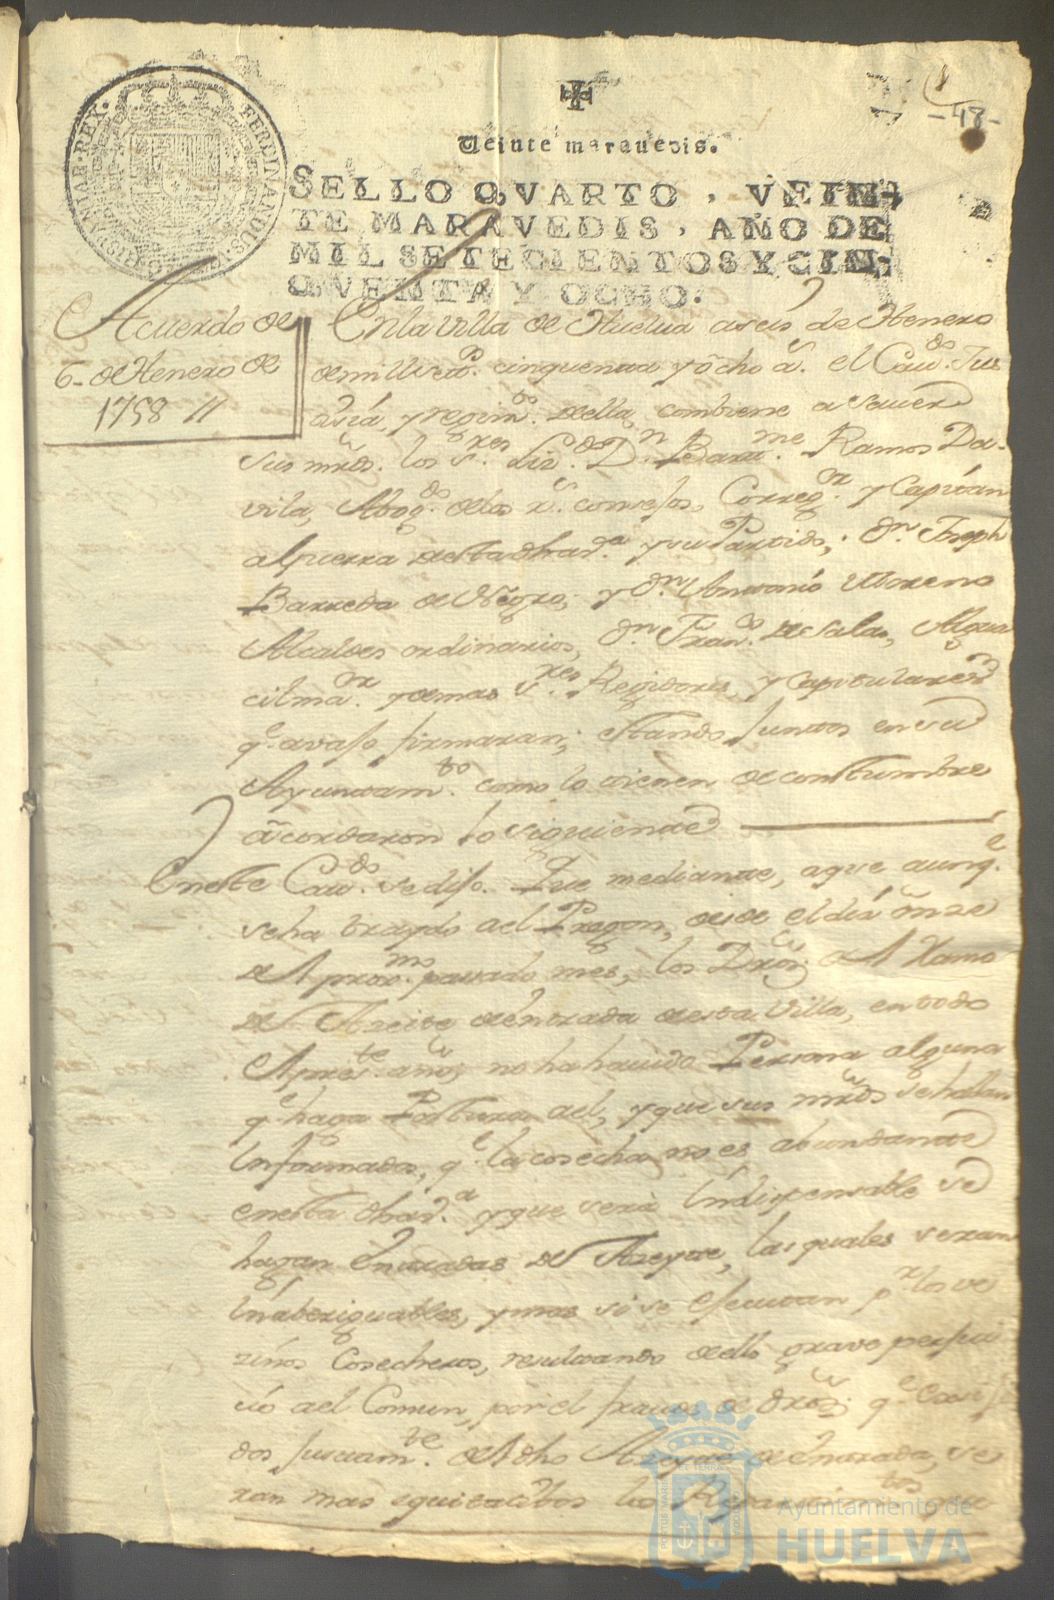 -48-
Veinte maravedis.
SELLO QVARTO, VEIN-
TE MARAVEDIS, AÑO DE
MIL SETECIENTOS Y CIN-
QVENTA Y OCHO.
FERDINANDUS HISPANIAR·REX·
Acuerdo de
6 de Henero de
1758 //
En la villa de Huelua a seis de Henero
de mill set.os cinquenta y ocho a.s el Cav.do Jus
ticia, y regim.to de ella, combiene a saver
sus mrds. los s.res Liz.do D.n Barme. Ramos Da-
vila, Abog.do de los r.s consejos, Correg.or y Capitan
a guerra de esta dha V.a y su Partido, D.n Joseph
Barreda de Negro, y D.n Antonio Moreno
Alcaldes ordinarios, D.n Fran.co de Salas, Algua
cil ma.or y demas s.res Regidores, y Capitulares
q.e avajo firmaran; estando juntos en su
Ayuntam.to como lo tienen de constumbre
acordaron lo siguiente
En este Cav.do se dijo. Que mediante, a que aunq.e
se ha traydo a el Pregon, desde el dia onze
de el prox.mo pasado mes, los Drõs de el Ramo
de Azeite de entrada de esta Villa, en todo
el pres.te año, no ha havido Persona alguna
q.e haga Postura a el, y que sus mrds se hallan
Informados, q.e la cosecha no es abundante
en esta dha V.a y que será Indispensable se
hagan Entradas de Azeyte, las quales seran
Inaberiguables, y mas si se executan p.r los ve
zinos Cosecheros, resultando de ello grave perjui
cio a el Comun, por el fraude de drõs; q.e
dos juntam.te de el dho Azeyte de entrada, se
ran mas equitatibos los Repartim.tos que
Ayuntamiento de
HUELVA